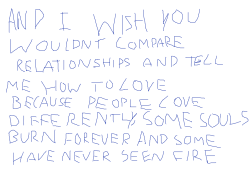 AND I WISH YOU
WOULDNT COMPARE
RELATIONSHIPS AND TELL
ME HOW TO LOVE
BECAUSE PEOPLE LOVE
DIFFERENTLY SOME SOULS
BURN FOREVER AND SOME
HAVE NEVER SEEN FIRE